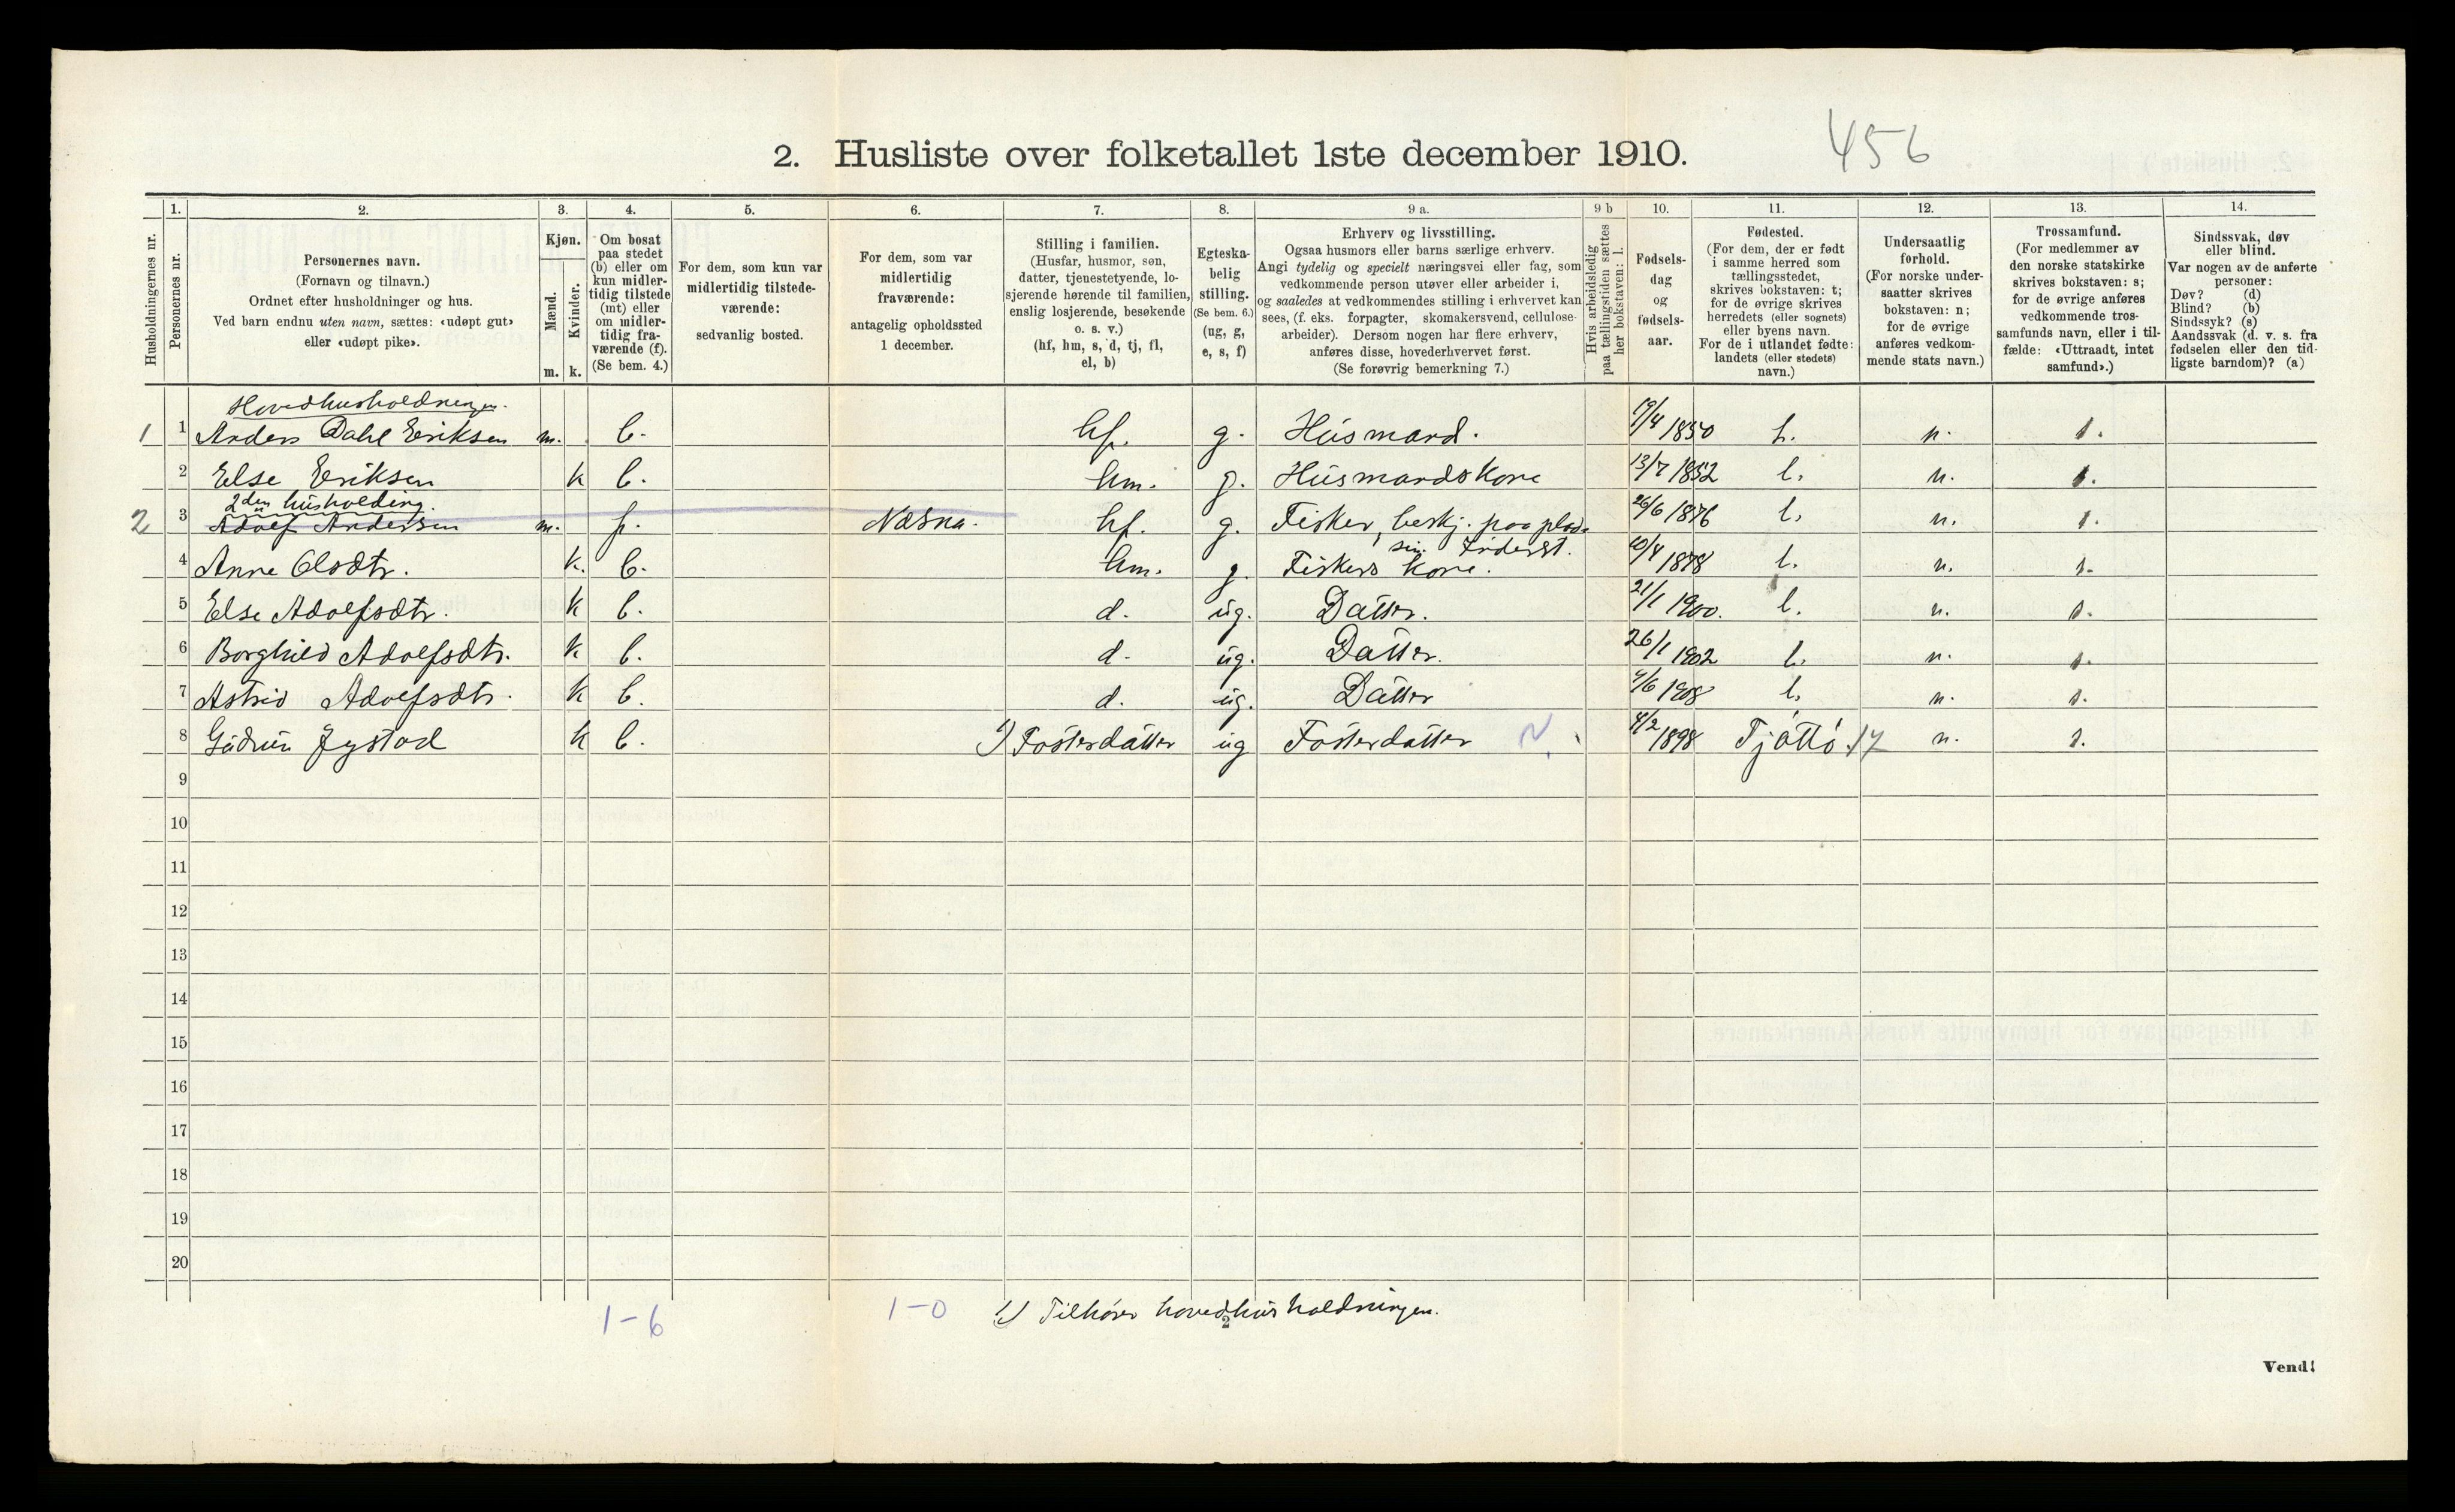 2. Husliste over folketallet 1ste december 1910.
456
Husholdningernes nr.
1. Personernes nr.
2. Personernes navn.
(Fornavn og tilnavn.)
Ordnet efter husholdninger og hus.
Ved barn endnu uten navn, sættes: «udøpt gut»
eller «udøpt pike».
3. Kjøn.
Mænd. Kvinder.
m. k.
4. Om bosat
paa stedet
(b) eller om
kun midler-
tidig tilstede
(mt) eller
om midler-
tidig fra-
værende (f).
(Se bem. 4.)
5. For dem, som kun var
midlertidig tilstede-
værende:
sedvanlig bosted.
6. For dem, som var
midlertidig
fraværende:
antagelig opholdssted
1 december.
7. Stilling i familien.
(Husfar, husmor, søn,
datter, tjenestetyende, lo-
sjerende hørende til familien,
enslig losjerende, besøkende
o. s. v.)
(hf, hm, s, d, tj, fl,
el, b)
8. Egteska-
belig
stilling.
(Se bem. 6.)
(ug, g,
e, s, f)
9 a. Erhverv og livsstilling.
Ogsaa husmors eller barns særlige erhverv.
Angi tydelig og specielt næringsvei eller fag, som
vedkommende person utøver eller arbeider i,
og saaledes at vedkommendes stilling i erhvervet kan
sees, (f. eks. forpagter, skomakersvend, cellulose-
arbeider). Dersom nogen har flere erhverv,
anføres disse, hovederhvervet først.
(Se forøvrig bemerkning 7.)
9 b Hvis arbeidsledig
paa tællingstiden sættes
her bokstaven: l.
10. Fødsels-
dag
og
fødsels-
aar.
11. Fødested.
(For dem, der er født
i samme herred som
tællingsstedet,
skrives bokstaven: t;
for de øvrige skrives
herredets (eller sognets)
eller byens navn.
For de i utlandet fødte:
landets (eller stedets)
navn.)
12. Undersaatlig
forhold.
(For norske under-
saatter skrives
bokstaven: n;
for de øvrige
anføres vedkom-
mende stats navn.)
13. Trossamfund.
(For medlemmer av
den norske statskirke
skrives bokstaven: s;
for de øvrige anføres
vedkommende tros-
samfunds navn, eller i til-
fælde: «Uttraadt, intet
samfund».)
14. Sindssvak, døv
eller blind.
Var nogen av de anførte
personer:
Døv? (d)
Blind? (b)
Sindssyk? (s)
Aandssvak (d. v. s. fra
fødselen eller den tid-
ligste barndom)? (a)
Hovedhusholdningen.
1 1 Anders Dahl Eriksen m. b. hf. g. Husmand. 19/4 1850 t. n. s.
2 Else Eriksen k b. hm. g. Husmandskone 13/7 1852 t. n. s.
2den husholding.
2 3 Adolf Andersen m. f. Næsna. hf. g. Fisker, beskj. paa plads 26/6 1876 t. n. s.
sin
4 Anne Olsdtr. k. b. hm. g. Fiskers kone. 10/4 1878 t. n. s.
5 Else Adolfsdtr. k b. d. ug. Datter. 21/1 1900. t. n. s.
6 Borghild Adolfsdtr. k b. d. ug. Datter. 26/1 1902 t. n. s.
7 Astrid Adolfsdtr. k b. d. ug. Datter 4/6 1908 t. n. s.
8 Gudrun Jystad k b. 1) Fosterdatter ug Fosterdatter N. 4/2 1898 Tjøttø 17 n. s.
9
10
11
12
13
14
15
16
17
18
19
20
1-6 1-0 1) Tilhører hovedhusholdningen.
2
Vend!